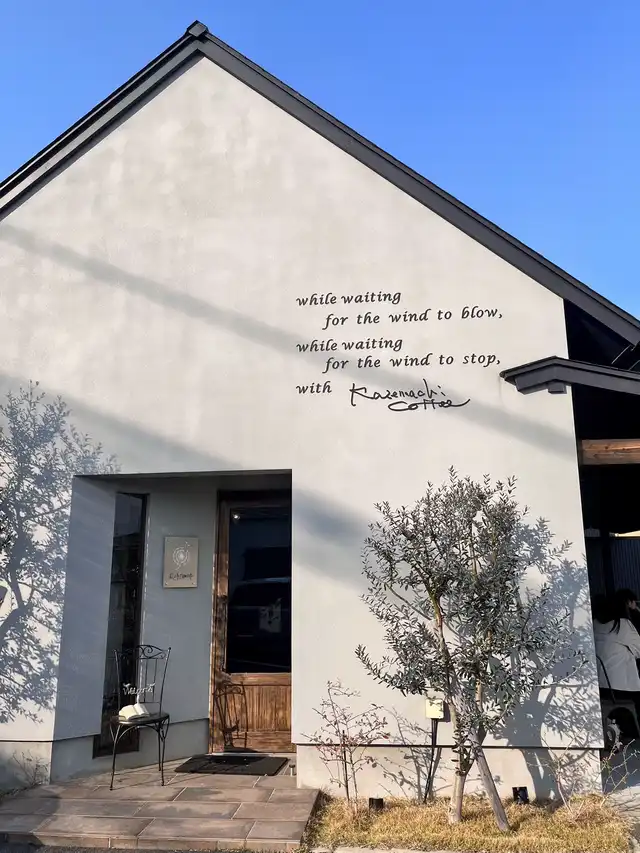 while waiting
for the wind to blow,
while waiting
for the wind to stop,
with Kazemachi
coffee
Welcome